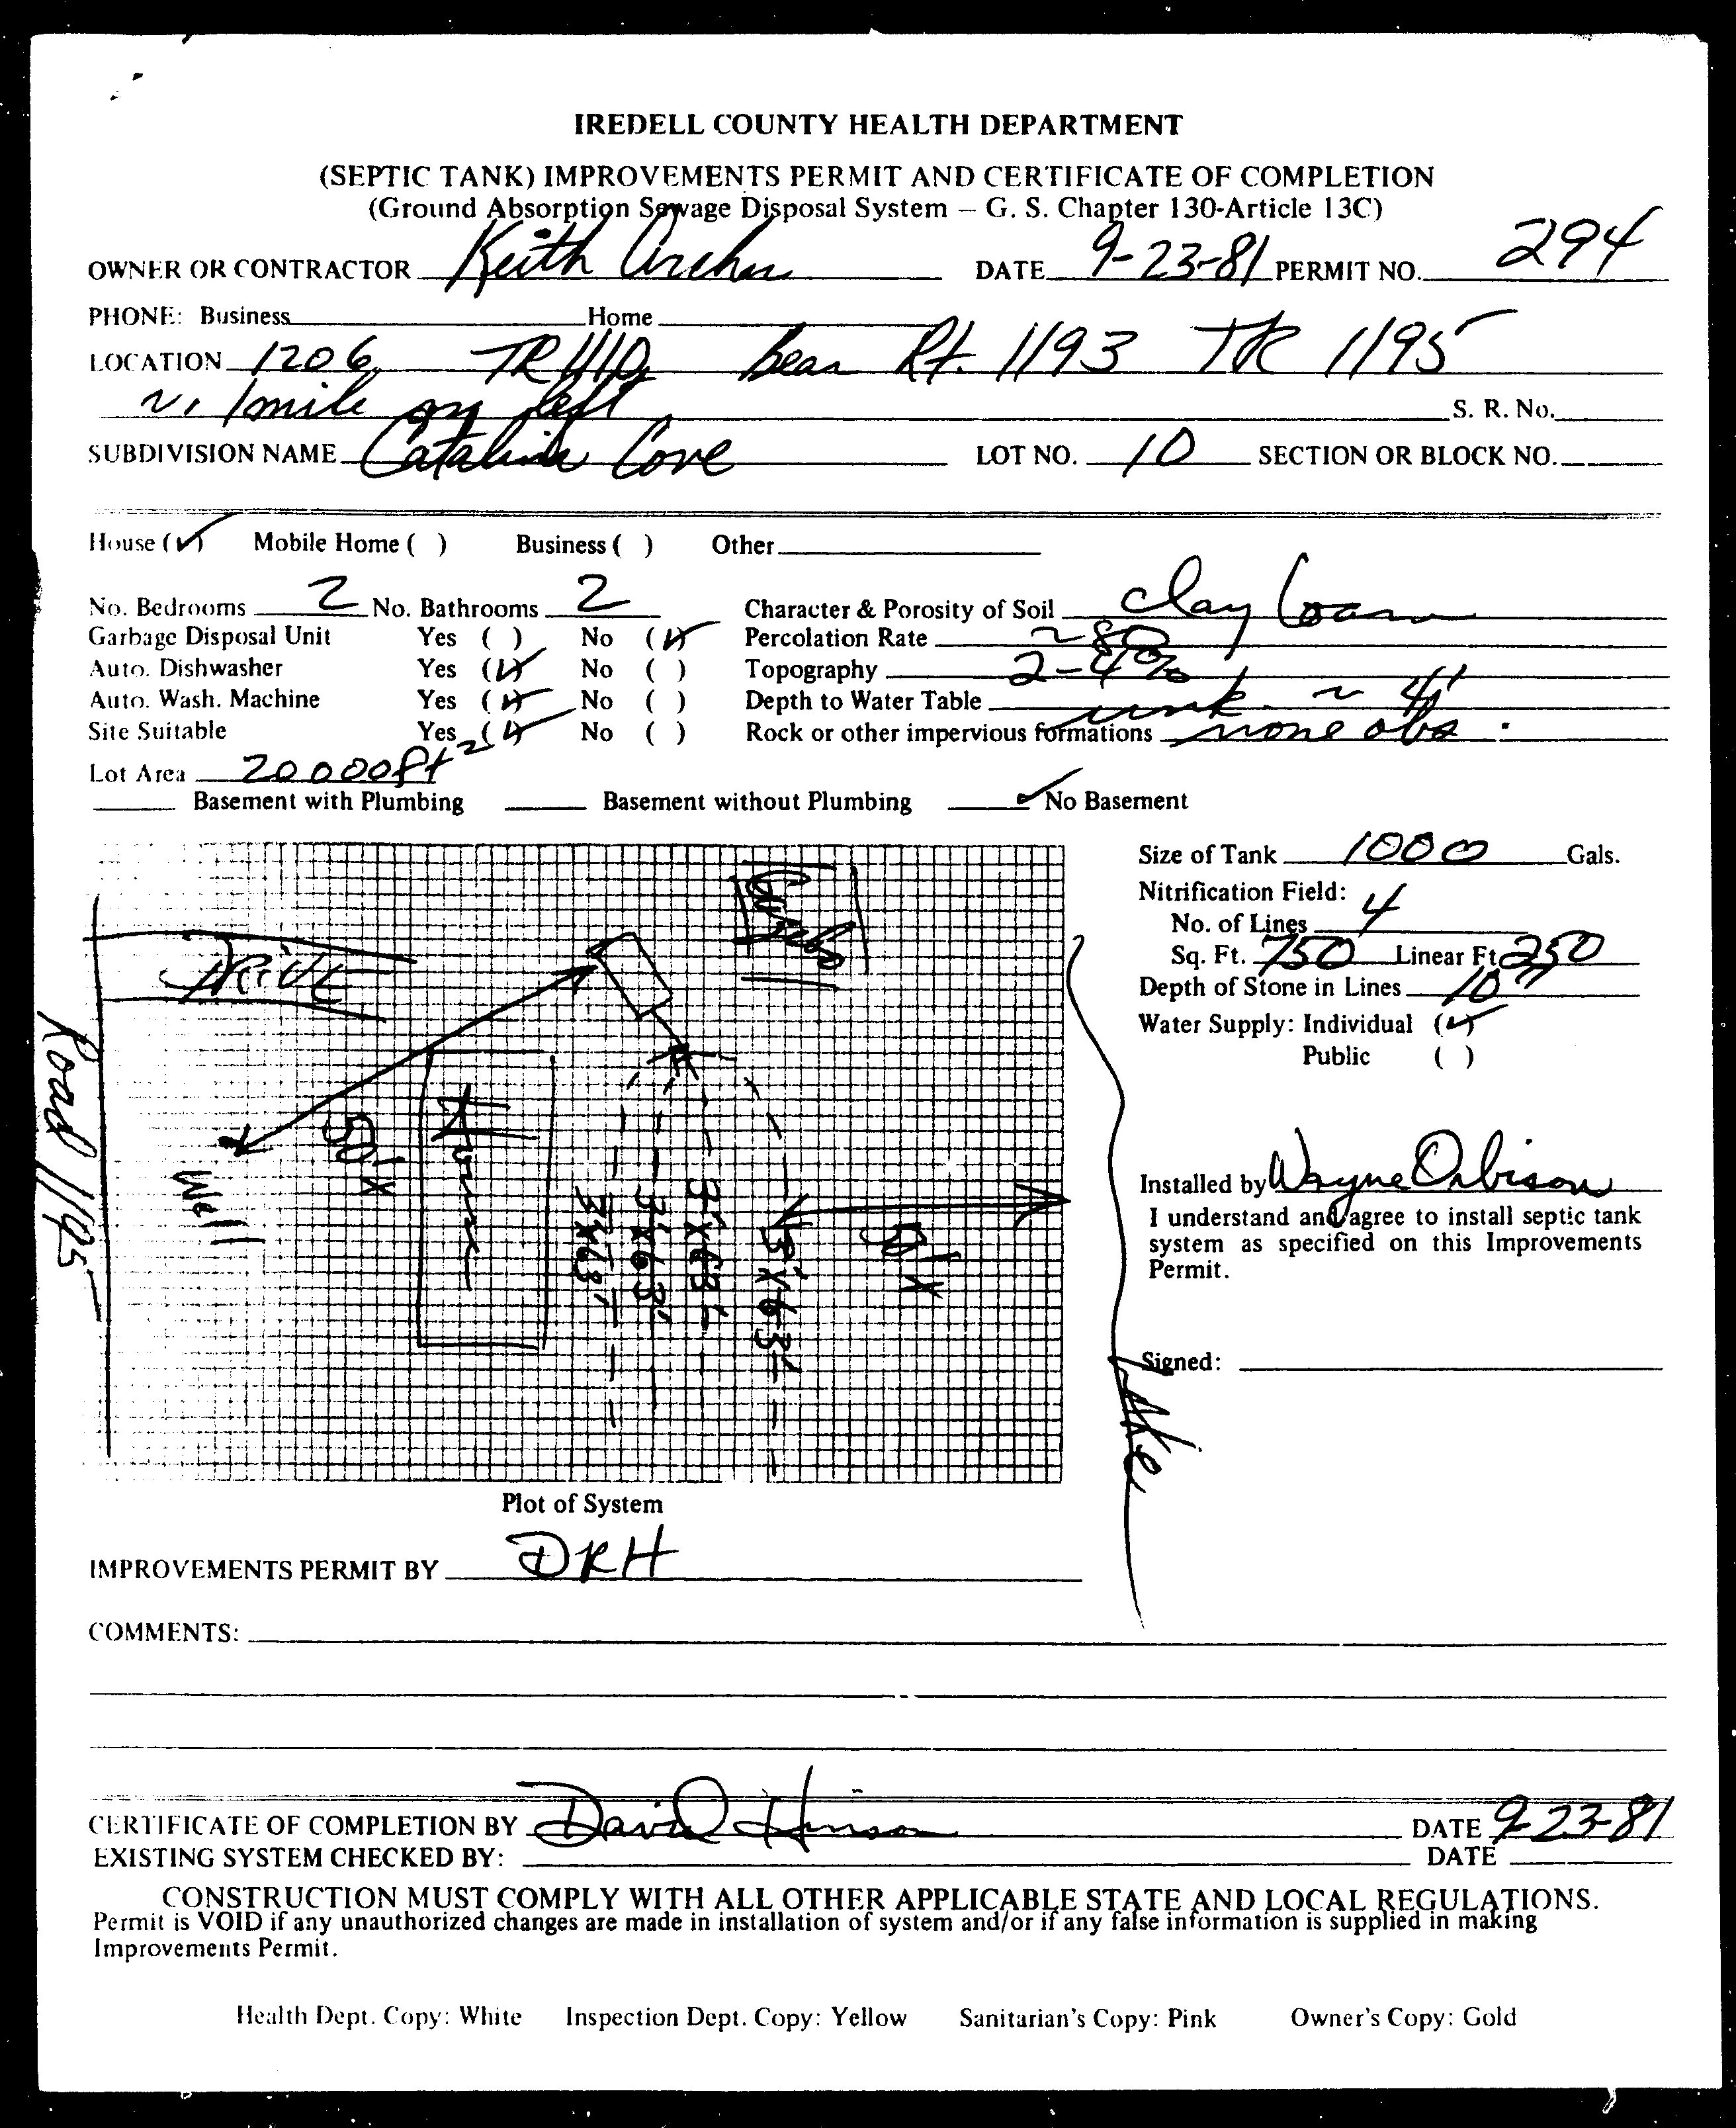 IREDELL COUNTY HEALTH DEPARTMENT
(SEPTIC TANK) IMPROVEMENTS PERMIT AND CERTIFICATE OF COMPLETION
(Ground Absorption Sewage Disposal System – G. S. Chapter 130-Article 13C)
OWNER OR CONTRACTOR Keith Archer DATE 9-23-81 PERMIT NO. 294
PHONE: Business Home
LOCATION 1206 TR 1110 bear Rt. 1193 TR 1195
~ 1 mile on left S. R. No.
SUBDIVISION NAME Catalina Cove LOT NO. 10 SECTION OR BLOCK NO.
House (✓) Mobile Home ( ) Business ( ) Other
No. Bedrooms 2 No. Bathrooms 2 Character & Porosity of Soil clay loam
Garbage Disposal Unit Yes ( ) No (✓) Percolation Rate ~80
Auto. Dishwasher Yes (✓) No ( ) Topography 2-4%
Auto. Wash. Machine Yes (✓) No ( ) Depth to Water Table unk. ~ 4'
Site Suitable Yes (✓) No ( ) Rock or other impervious formations none obs.
Lot Area 20000ft²
Basement with Plumbing Basement without Plumbing ✓ No Basement
Size of Tank 1000 Gals.
Nitrification Field:
No. of Lines 4
Sq. Ft. 750 Linear Ft 250
Depth of Stone in Lines 10"
Water Supply: Individual (✓)
Public ( )
Drive
Road 1195
Well
50'x
House
3'x63'
3'x63'
3'x63'
3'x63'
50'x
Lake
Installed by Wayne Orbison
I understand and agree to install septic tank
system as specified on this Improvements
Permit.
Signed:
Plot of System
IMPROVEMENTS PERMIT BY DRH
COMMENTS:
CERTIFICATE OF COMPLETION BY David Hinson DATE 9-23-81
EXISTING SYSTEM CHECKED BY: DATE
CONSTRUCTION MUST COMPLY WITH ALL OTHER APPLICABLE STATE AND LOCAL REGULATIONS.
Permit is VOID if any unauthorized changes are made in installation of system and/or if any false information is supplied in making
Improvements Permit.
Health Dept. Copy: White Inspection Dept. Copy: Yellow Sanitarian's Copy: Pink Owner's Copy: Gold